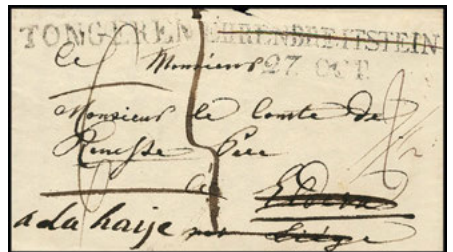 TONGEREN EHRENBREITSTEIN
A Monsieur 27 OCT
Monsieur le Comte de
Renesse Père
à Elderen
a la haije Liége